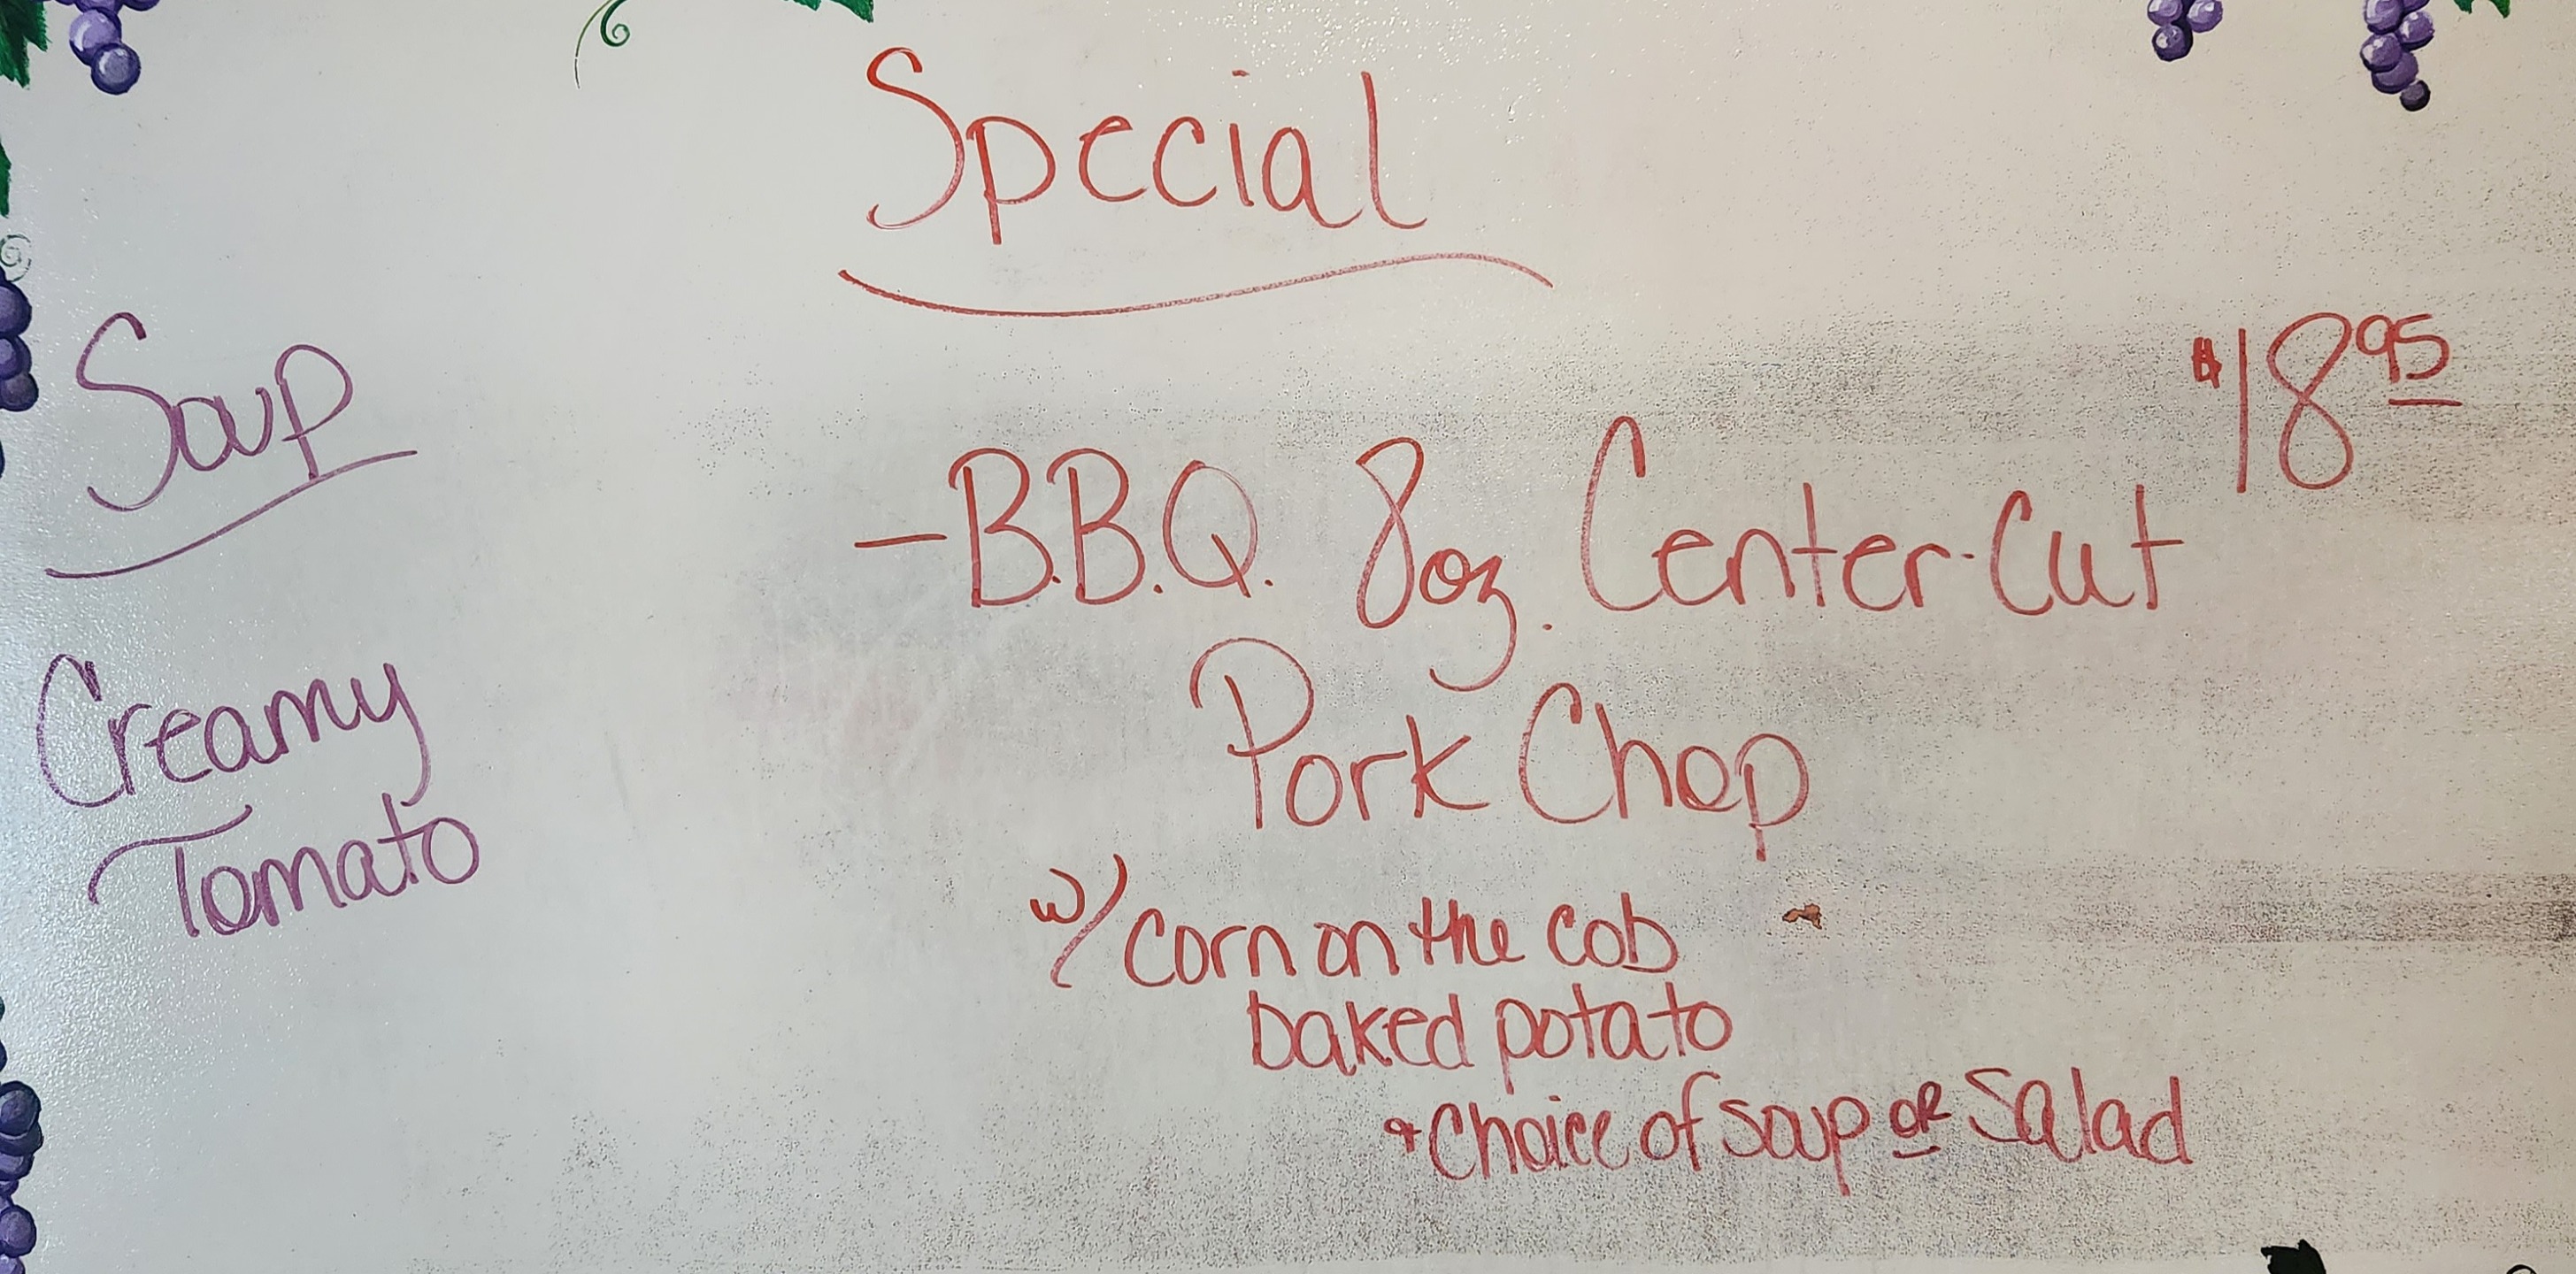 Special
Soup
Creamy
Tomato
$18 95
- B.B.Q. 8oz. Center-Cut
Pork Chop
w/ Corn on the Cob
baked potato
+ Choice of soup or Salad